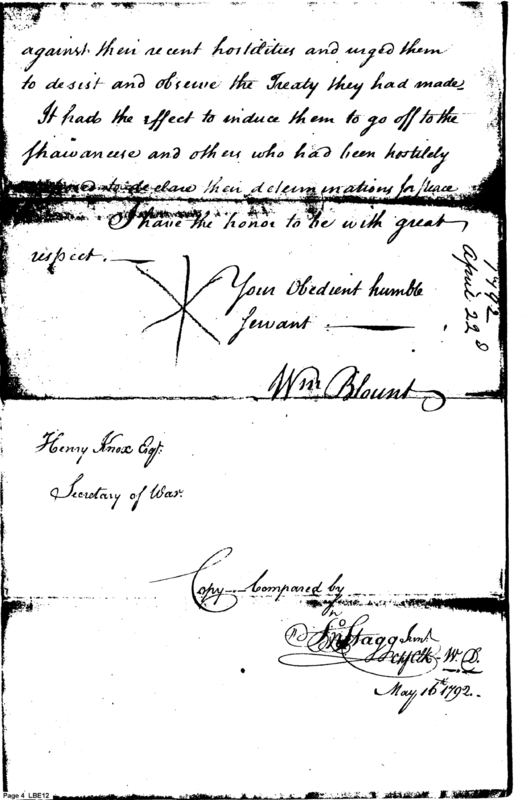 against their recent hostilities and urged them
to desist and observe the Treaty they had made
It had the effect to induce them to go off to the
Shawanese and others who had been hostilely
to declare their determinations for peace
I have the honor to be with great
respect.
Your Obedient humble
Servant
Wm Blount
1792
April 22d
Henry Knox Esqr.
Secretary of War.
Copy Compared by
Jno Stagg Junr
Ch Clk W. D.
May 16th 1792.
Page 4 LBE12